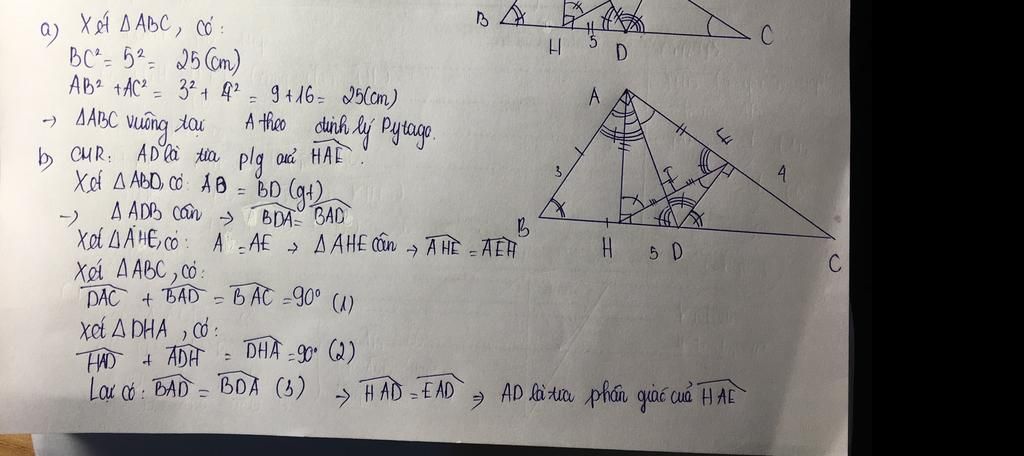 a) Xét ΔABC, có:
BC² = 5² = 25(cm)
AB² + AC² = 3² + 4² = 9 + 16 = 25(cm)
→ ΔABC vuông tại A theo định lý Pytago.
b) CMR: AD là tia p/g của HAE.
Xét ΔABD, có: AB = BD (gt)
→ ΔADB cân → BDA = BAD
Xét ΔAHE, có: A = AE → ΔAHE cân → AHE = AEH
Xét ΔABC, có:
DAC + BAD = BAC = 90° (1)
Xét ΔDHA, có:
HAD + ADH = DHA = 90° (2)
Lại có: BAD = BDA (3) → HAD = EAD ⇒ AD là tia phân giác của HAE
B H 5 D C
A
E
3 I 4
B
H 5 D
C